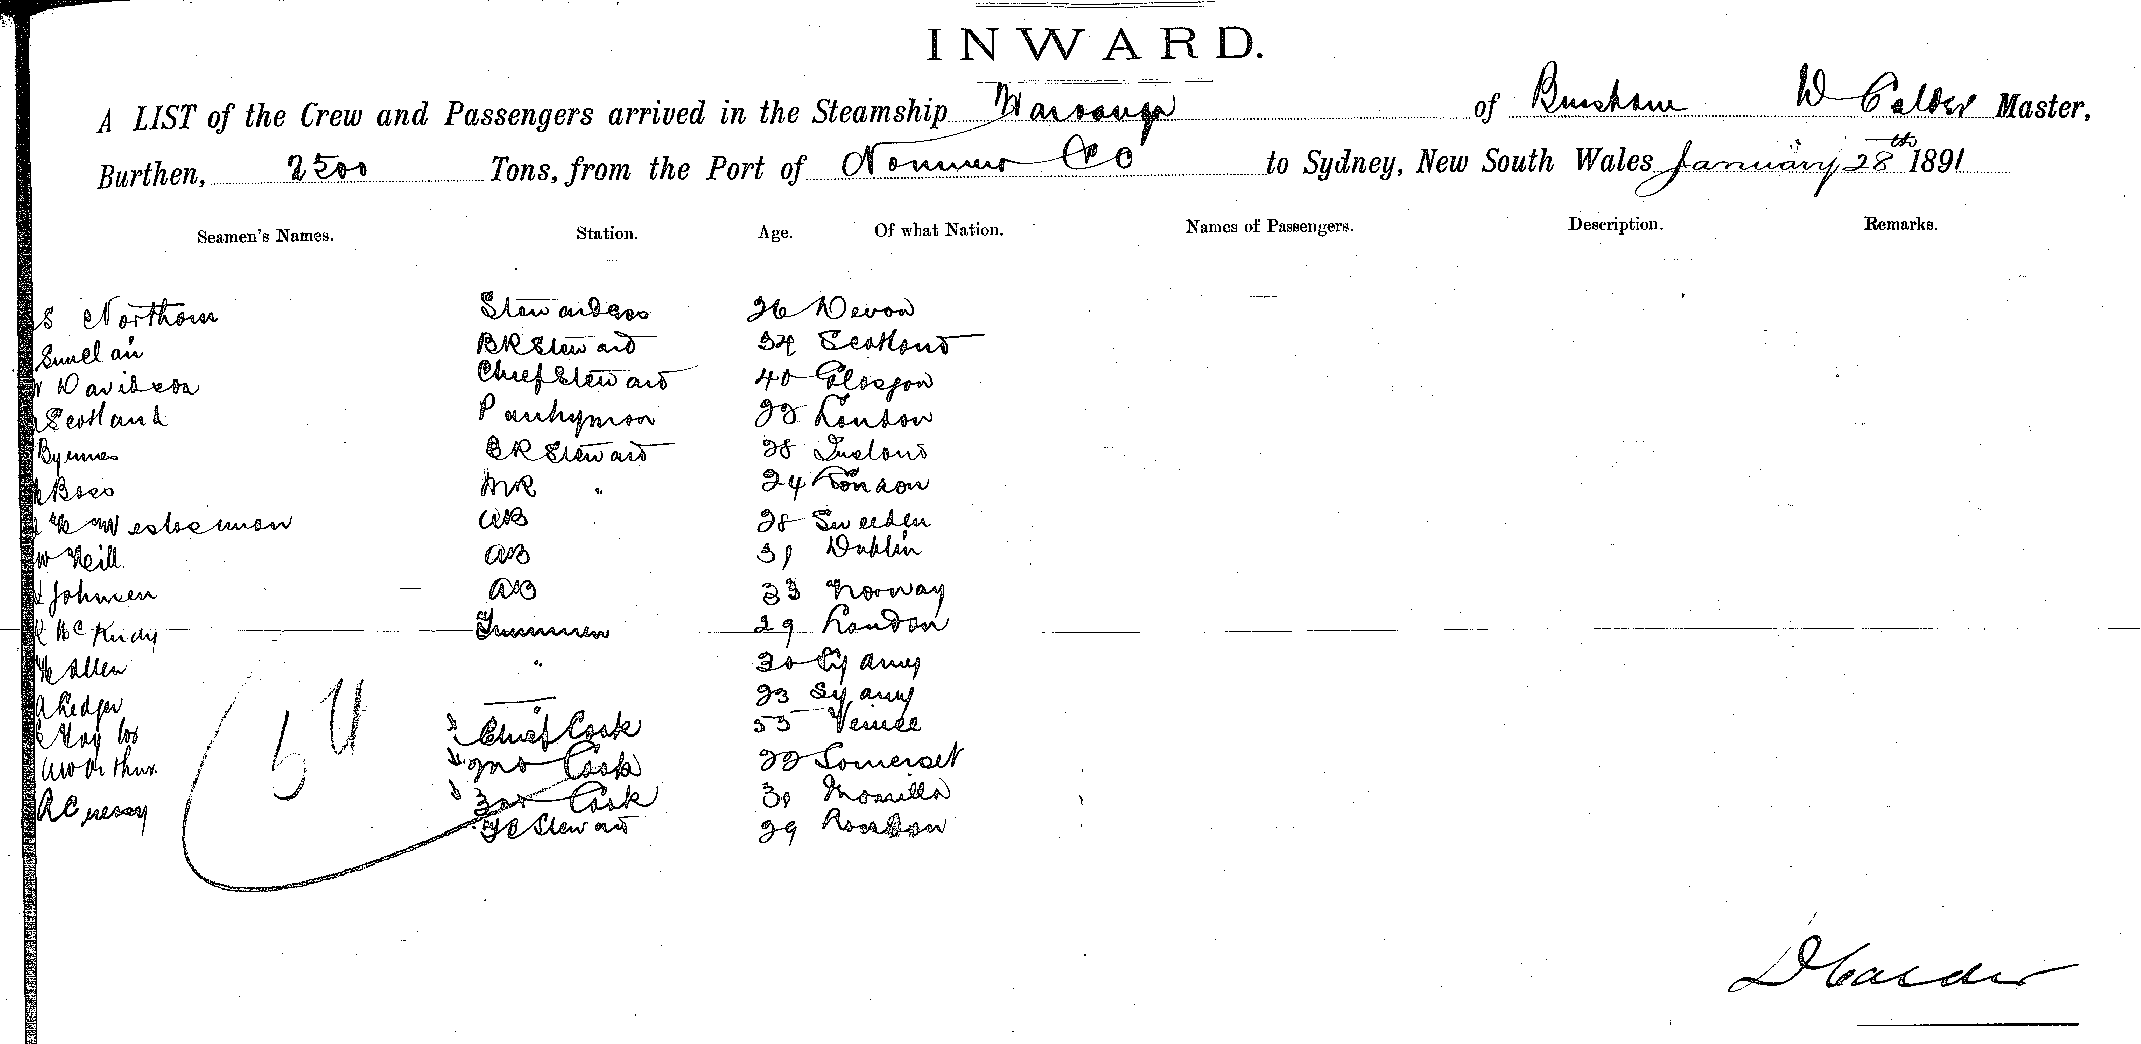 INWARD.
A LIST of the Crew and Passengers arrived in the Steamship Warronga of Brisbane W Calder Master,
Burthen, 2500 Tons, from the Port of to Sydney, New South Wales January 28th 1891
Seamen's Names. Station. Age. Of what Nation. Names of Passengers. Description. Remarks.
S Northam Stewardess 26 Devon
Sinclair BR Steward 34 Scotland
Davidson Chief Steward 40 Glasgow
Scotland Pantryman 22 London
Byrnes BR Steward 28 Ireland
Boss MR " 24 London
Westerman AB 28 Sweeden
W Neill AB 31 Dublin
Johnsen AB 33 Norway
McKirdy 29 London
Allen " 30 Sydney
A Ledger " 23 Sydney
Chief Cook 53 Venice
Arthur 2nd Cook 22 Somerset
A Creesy 3rd Cook 30 Manilla
FC Steward 29 London
54
D Calder